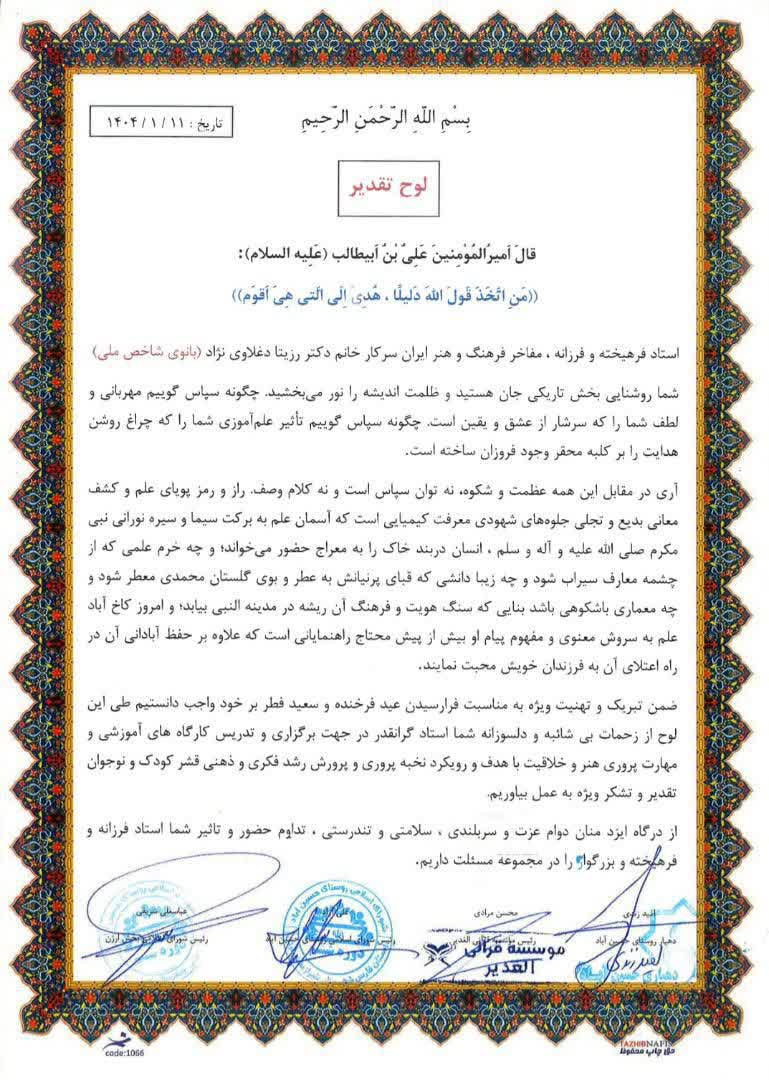 بِسْمِ اللّهِ الرَّحْمَنِ الرَّحِیمِ
تاریخ : ۱۴۰۴/۱/۱۱
لوح تقدیر
قالَ اَمیرُالمُؤمِنینَ عَلِیٌ بْنٌ اَبیطالب (عَلیهِ السلام):
((مَنِ اتَّخَذَ قَولَ اللهَ دَلیلًا ، هُدِیَ اِلَی الَتی هِیَ اَقوَم))
استاد فرهیخته و فرزانه ، مفاخر فرهنگ و هنر ایران سرکار خانم دکتر رزیتا دغلاوی نژاد (بانوی شاخص ملی)
شما روشنایی بخش تاریکی جان هستید و ظلمت اندیشه را نور می‌بخشید. چگونه سپاس گوییم مهربانی و
لطف شما را که سرشار از عشق و یقین است. چگونه سپاس گوییم تأثیر علم‌آموزی شما را که چراغ روشن
هدایت را بر کلبه محقر وجود فروزان ساخته است.
آری در مقابل این همه عظمت و شکوه، نه توان سپاس است و نه کلام وصف. راز و رمز پویای علم و کشف
معانی بدیع و تجلی جلوه‌های شهودی معرفت کیمیایی است که آسمان علم به برکت سیما و سیره نورانی نبی
مکرم صلی الله علیه و آله و سلم ، انسان دربند خاک را به معراج حضور می‌خواند؛ و چه خرم علمی که از
چشمه معارف سیراب شود و چه زیبا دانشی که قبای پرنیانش به عطر و بوی گلستان محمدی معطر شود و
چه معماری باشکوهی باشد بنایی که سنگ هویت و فرهنگ آن ریشه در مدینه النبی بیابد؛ و امروز کاخ آباد
علم به سروش معنوی و مفهوم پیام او بیش از پیش محتاج راهنمایانی است که علاوه بر حفظ آبادانی آن در
راه اعتلای آن به فرزندان خویش محبت نمایند.
ضمن تبریک و تهنیت ویژه به مناسبت فرارسیدن عید فرخنده و سعید فطر بر خود واجب دانستیم طی این
لوح از زحمات بی شائبه و دلسوزانه شما استاد گرانقدر در جهت برگزاری و تدریس کارگاه های آموزشی و
مهارت پروری هنر و خلاقیت با هدف و رویکرد نخبه پروری و پرورش رشد فکری و ذهنی قشر کودک و نوجوان
تقدیر و تشکر ویژه به عمل بیاوریم.
از درگاه ایزد منان دوام عزت و سربلندی ، سلامتی و تندرستی ، تداوم حضور و تاثیر شما استاد فرزانه و
فرهیخته و بزرگوار را در مجموعه مسئلت داریم.
امید زندی
دهیار روستای حسین آباد
محسن مرادی
رئیس مؤسسه قرآنی الغدیر
علی
رئیس شورای اسلامی روستای حسین آباد
عباسعلی شریفی
رئیس شورای اسلامی بخش ارژن
موسسه قرآنی
الغدیر
دهیاری حسین آباد
شورای اسلامی روستای حسین آباد
code:1066
TAZHIBNAFIS
حق چاپ محفوظ